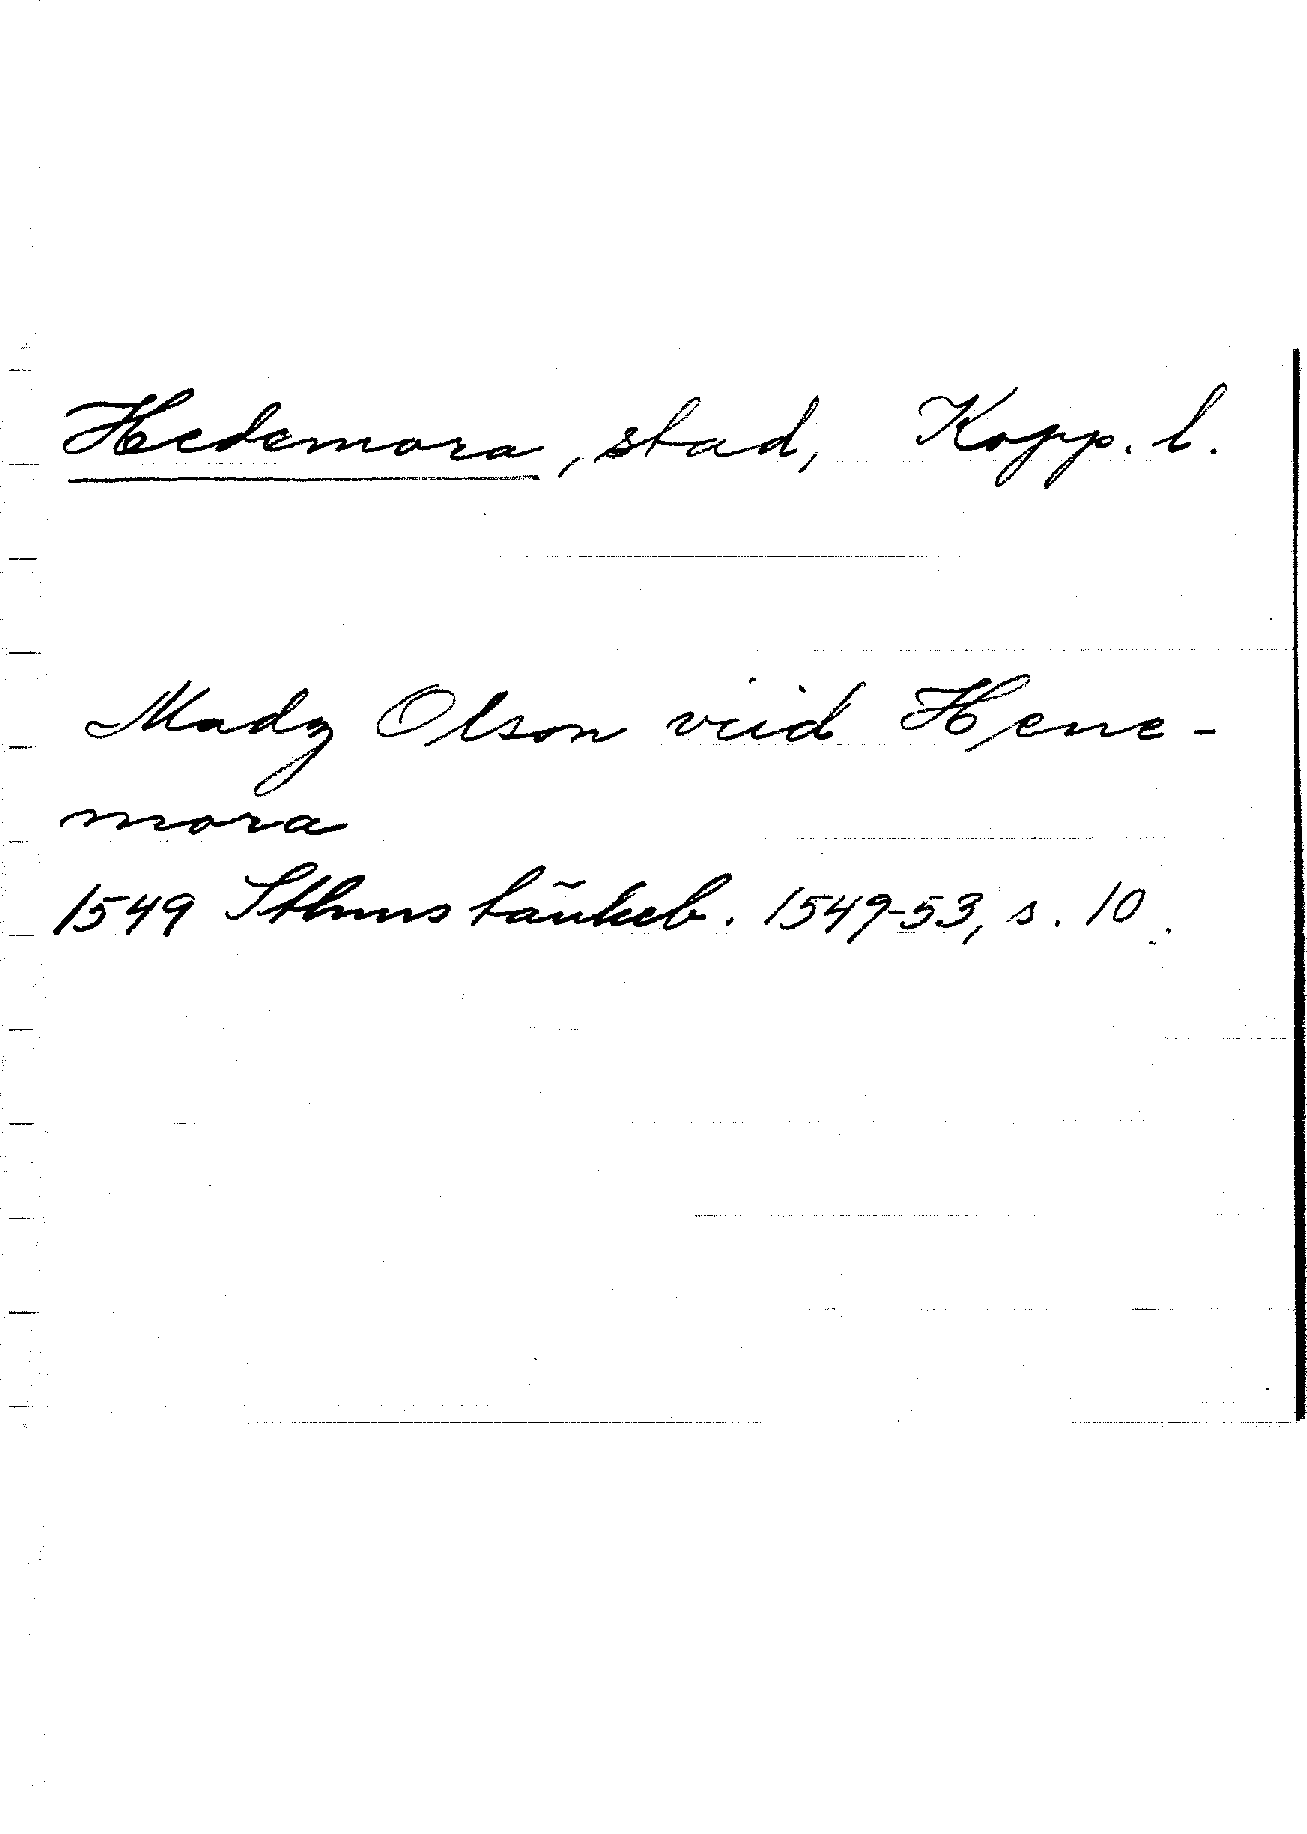 Hedemora, stad, Kopp. l.
Madz Olson viid Hene-
mora
1549 Sthms tänkeb. 1549-53, s. 10.